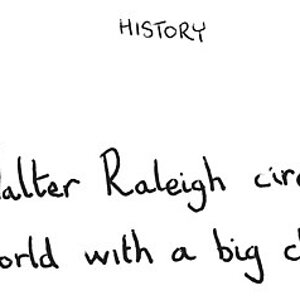 HISTORY
alter Raleigh circ
orld with a big c